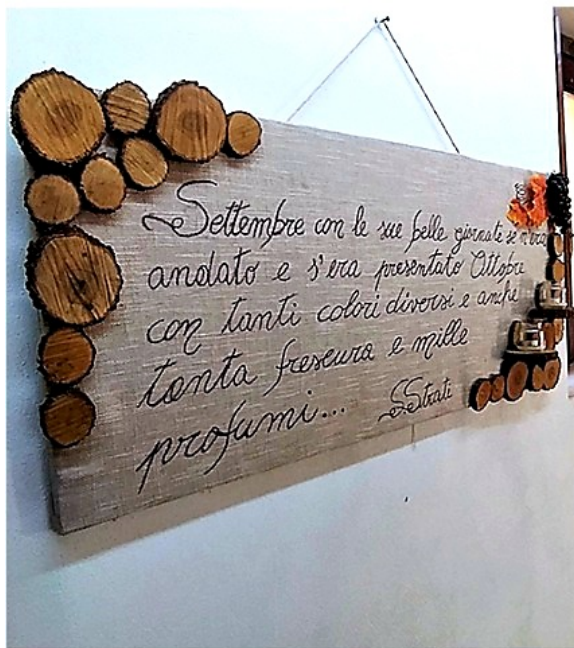 Settembre con le sue belle giornate se n'era
andato e s'era presentato Ottobre
con tanti colori diversi e anche
tanta frescura e mille
profumi...
SStrati